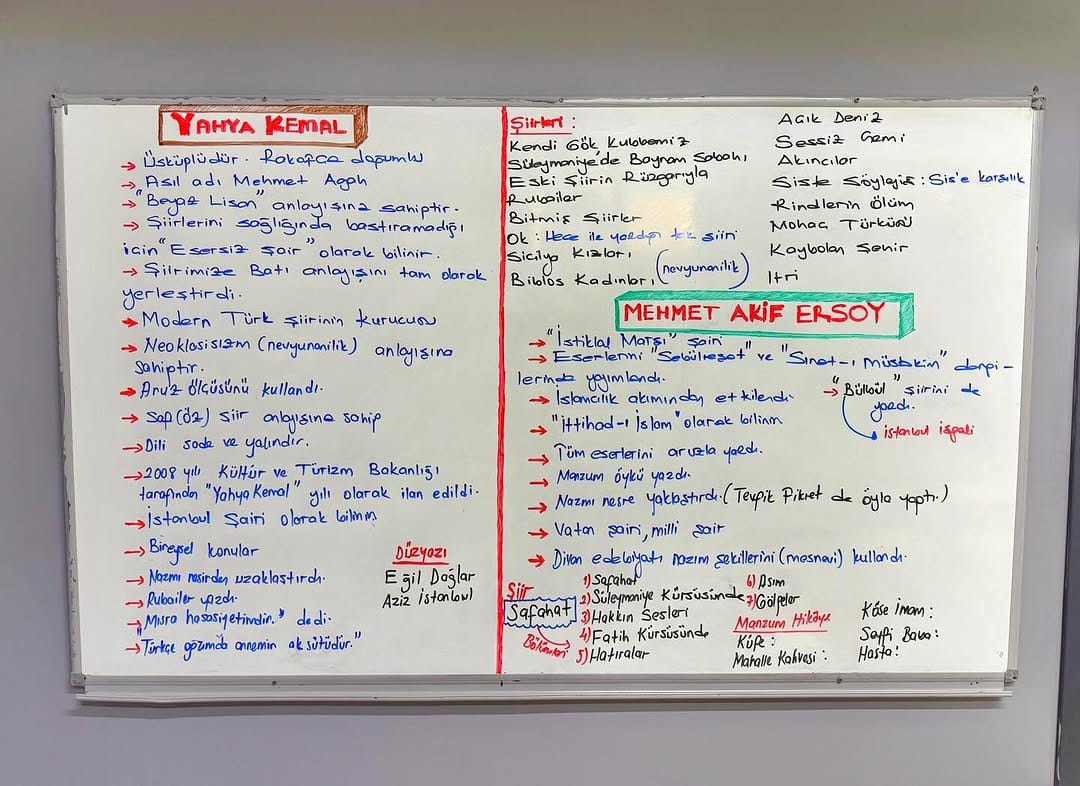 YAHYA KEMAL
→ Üsküplüdür. Rakofça doğumlu
→ Asıl adı Mehmet Agah
→ "Beyaz Lisan" anlayışına sahiptir.
→ Şiirlerini sağlığında bastıramadığı
için "Esersiz şair" olarak bilinir.
→ Şiirimize Batı anlayışını tam olarak
yerleştirdi.
→ Modern Türk şiirinin kurucusu
→ Neoklasisizm (nevyunanilik) anlayışına
sahiptir.
→ Aruz ölçüsünü kullandı.
→ Saf (öz) şiir anlayışına sahip
→ Dili sade ve yalındır.
→ 2008 yılı Kültür ve Turizm Bakanlığı
tarafından "Yahya Kemal" yılı olarak ilan edildi.
→ İstanbul Şairi olarak bilinir.
→ Bireysel konular
→ Nazmı nesirden uzaklaştırdı.
→ Rubailer yazdı.
→ "Mısra haysiyetimdir." dedi.
→ "Türkçe ağzımda annemin ak sütüdür."
DÜZYAZI
Eğil Dağlar
Aziz İstanbul
Şiirleri:
Kendi Gök Kubbemiz
Süleymaniye'de Bayram Sabahı
Eski Şiirin Rüzgarıyla
Rubailer
Bitmiş Şiirler
Ok: Hece ile yazdığı tek şiiri
Sicilya Kızları
Biblos Kadınları (nevyunanilik)
Açık Deniz
Sessiz Gemi
Akıncılar
Siste Söyleyiş: Sis'e karşılık
Rindlerin Ölüm
Mohaç Türküsü
Kaybolan Şehir
Itri
MEHMET AKİF ERSOY
→ "İstiklal Marşı" şairi
→ Eserlerini "Sebülreşat" ve "Sırat-ı Müstakim" dergi-
lerinde yayımlandı.
→ İslamcılık akımından etkilendi.
→ "İttihad-ı İslam" olarak bilinir.
→ Tüm eserlerini aruzla yazdı.
→ Manzum öykü yazdı.
→ Nazmı nesre yaklaştırdı. (Tevfik Fikret de öyle yaptı.)
→ Vatan şairi, milli şair
→ Divan edebiyatı nazım şekillerini (mesnevi) kullandı.
→ "Bülbül" şiirini de
yazdı.
İstanbul işgali
Şiir
Safahat
Bölümleri
1) Safahat
2) Süleymaniye Kürsüsünde
3) Hakkın Sesleri
4) Fatih Kürsüsünde
5) Hatıralar
6) Asım
7) Gölgeler
Manzum Hikâye
Küfe:
Mahalle Kahvesi:
Köse İmam:
Seyfi Baba:
Hasta: